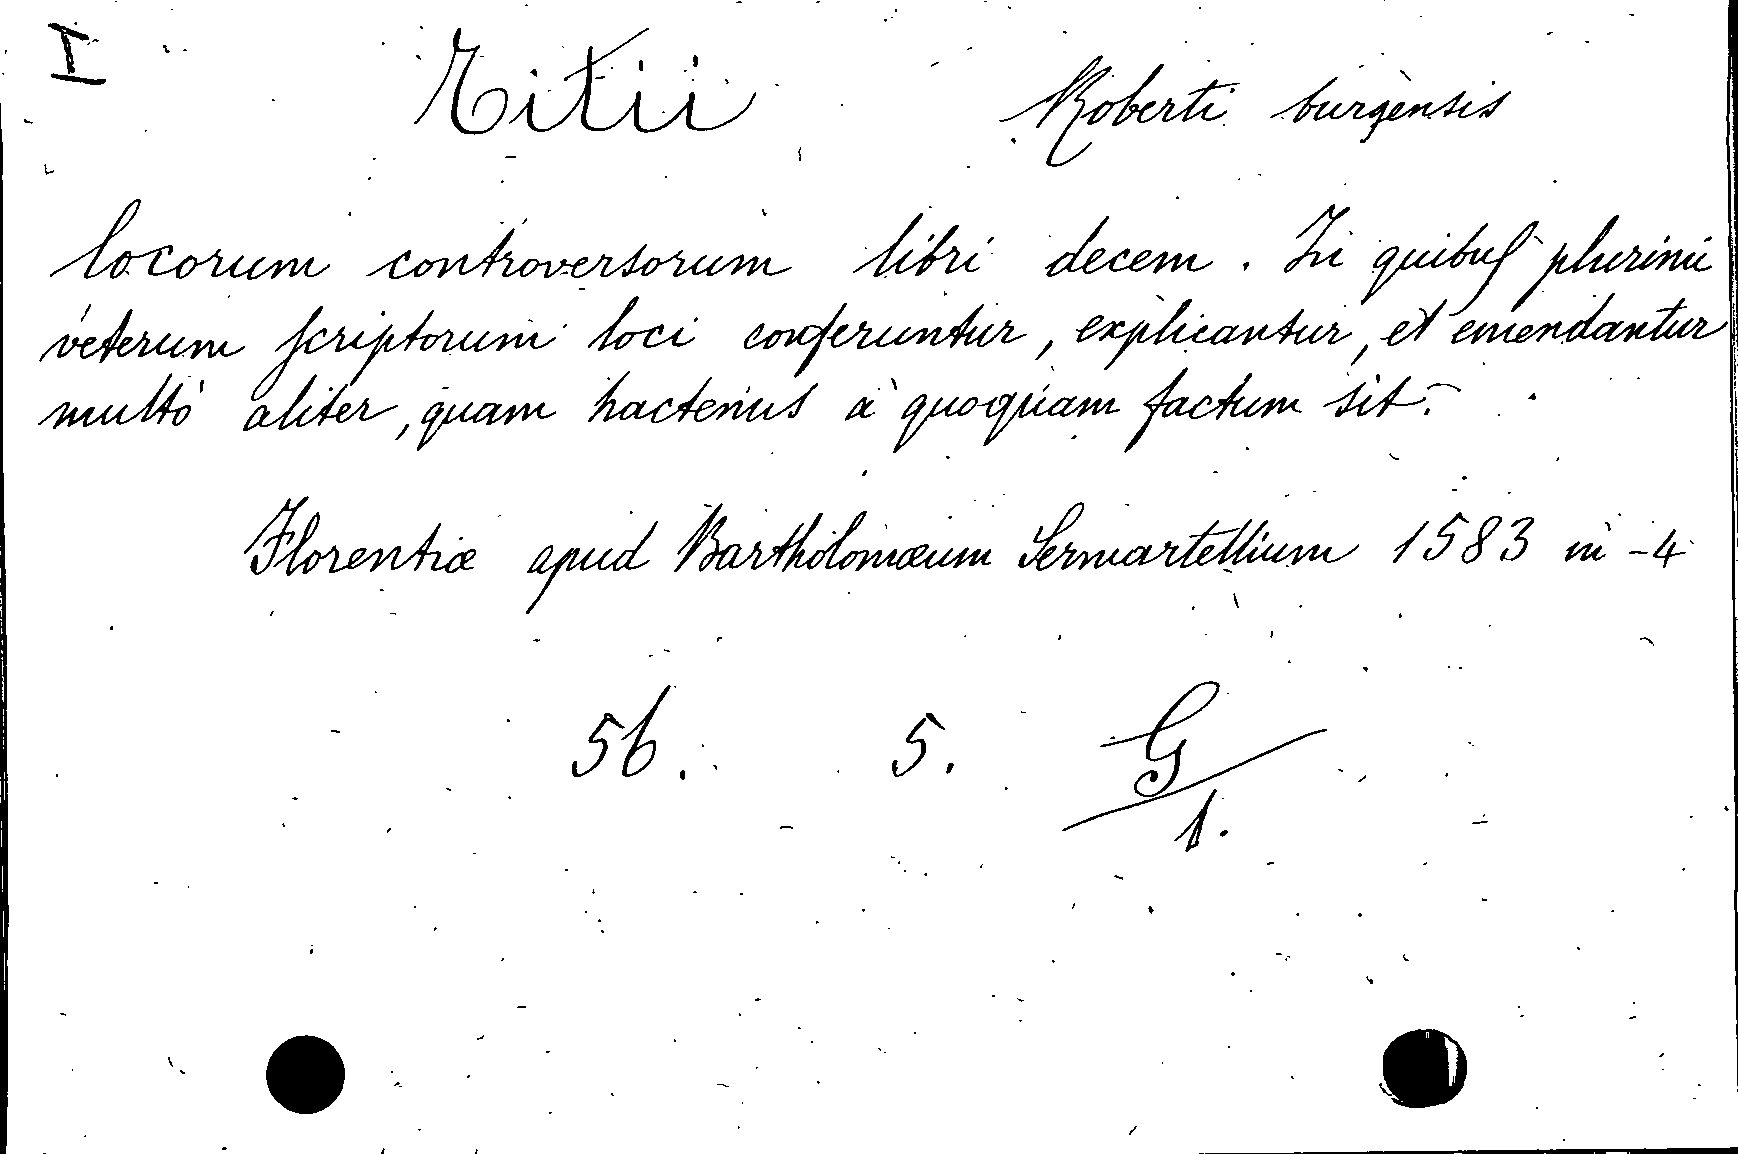 I
Titii Roberti burgensis
locorum controversorum libri decem. In quibus plurimi
veterum scriptorum loci conferuntur, explicantur, et emendantur
multò aliter, quam hactenus à quoquam factum sit.
Florentiæ apud Bartholomæum Sermartellium 1583 in-4
56. 5. G/1.